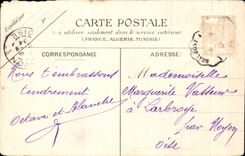 CARTE POSTALE
à utiliser seulement dans le service intérieur
(FRANCE, ALGÉRIE, TUNISIE)
CORRESPONDANCE
ADRESSE
Nous t'embrassons
tendrement
Octave et Blanche
Mademoiselle
Marguerite Vasseur
à Larbroye
par Noyon
Oise